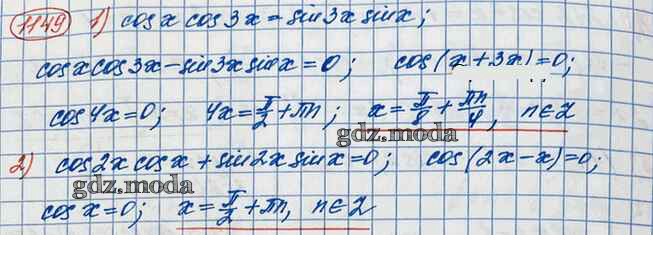 1149 1) cosx cos3x = sin3x sinx;
cosxcos3x-sin3xsinx=0; cos(x+3x)=0;
cos4x=0; 4x=π/2+πn; x=π/8+πn/4, n∈Z
gdz.moda
2) cos2x cosx+sin2x sinx=0; cos(2x-x)=0;
gdz.moda
cosx=0; x=π/2+πn, n∈Z